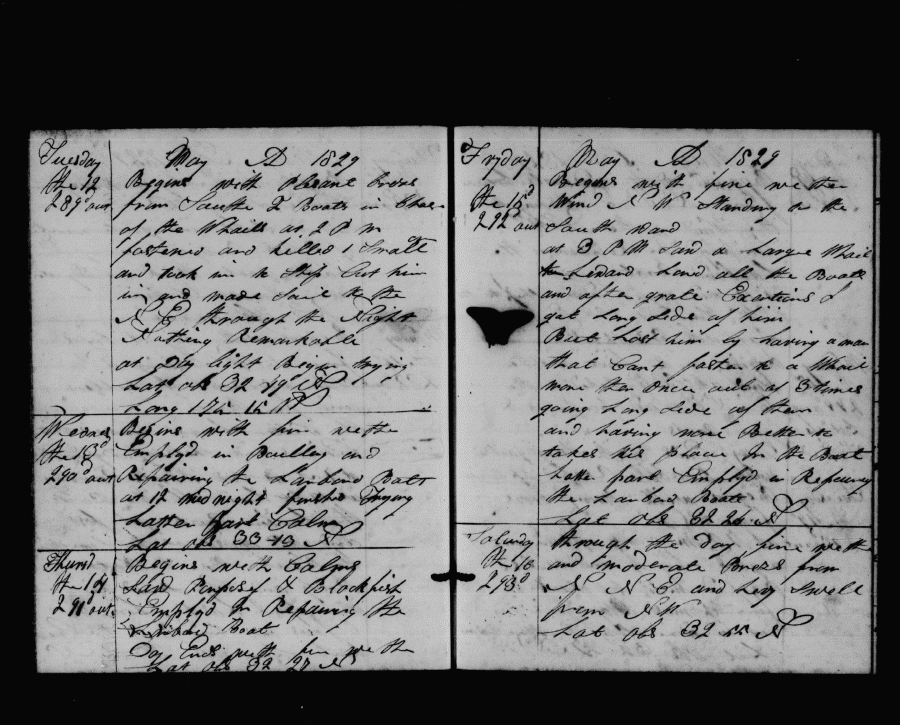 Tuesday
the 12
289 d out
May AD 1829
Begins with Plesant brees
from Southe Boats in Chase
of the Whaill at 2 P m
fastened and killed 1 Small
and took im to Ship Cut him
in and made Sail to the
N E through the Night
Nothing Remarkable
at Day light Begin trying
Lat obs 32 19 N
Long 175 15 W
Wednes
the 13 d
290 d out
Begins with fin wethe
Employd in Boulling and
Repairing the Larbord Bote
at 12 midnight finshd Trying
Latter part Calm
Lat obs 33-13 N
Thursd
the 14
291 d out
Begins with Calms
Sand Porposes & Blackfish
Employd In Repairing the
Larbord Boat
Day Ends with fin wethe
Lat obs 32 27 N
Fryday
the 15 d
292 d out
May AD 1829
Begins with fine wether
Wind N W Standing to the
South Ward
at 3 P M Sand a Large Whail
to Leward Lowd all the Boats
and after grate Exertions I
got Long Side of him
But Lost him by having a man
that Cant fasten to a Whail
more then once out of 3 times
going Long Side of them
and having none Better to
take his place In the Boat
Later part Employd in Repairing
the Larbord Boate
Lat obs 32 26 N
Saturday
the 16
293 d
through the day fine wether
and moderate Brees from
N N E and hevy Swell
from N W
Lat obs 32 55 N